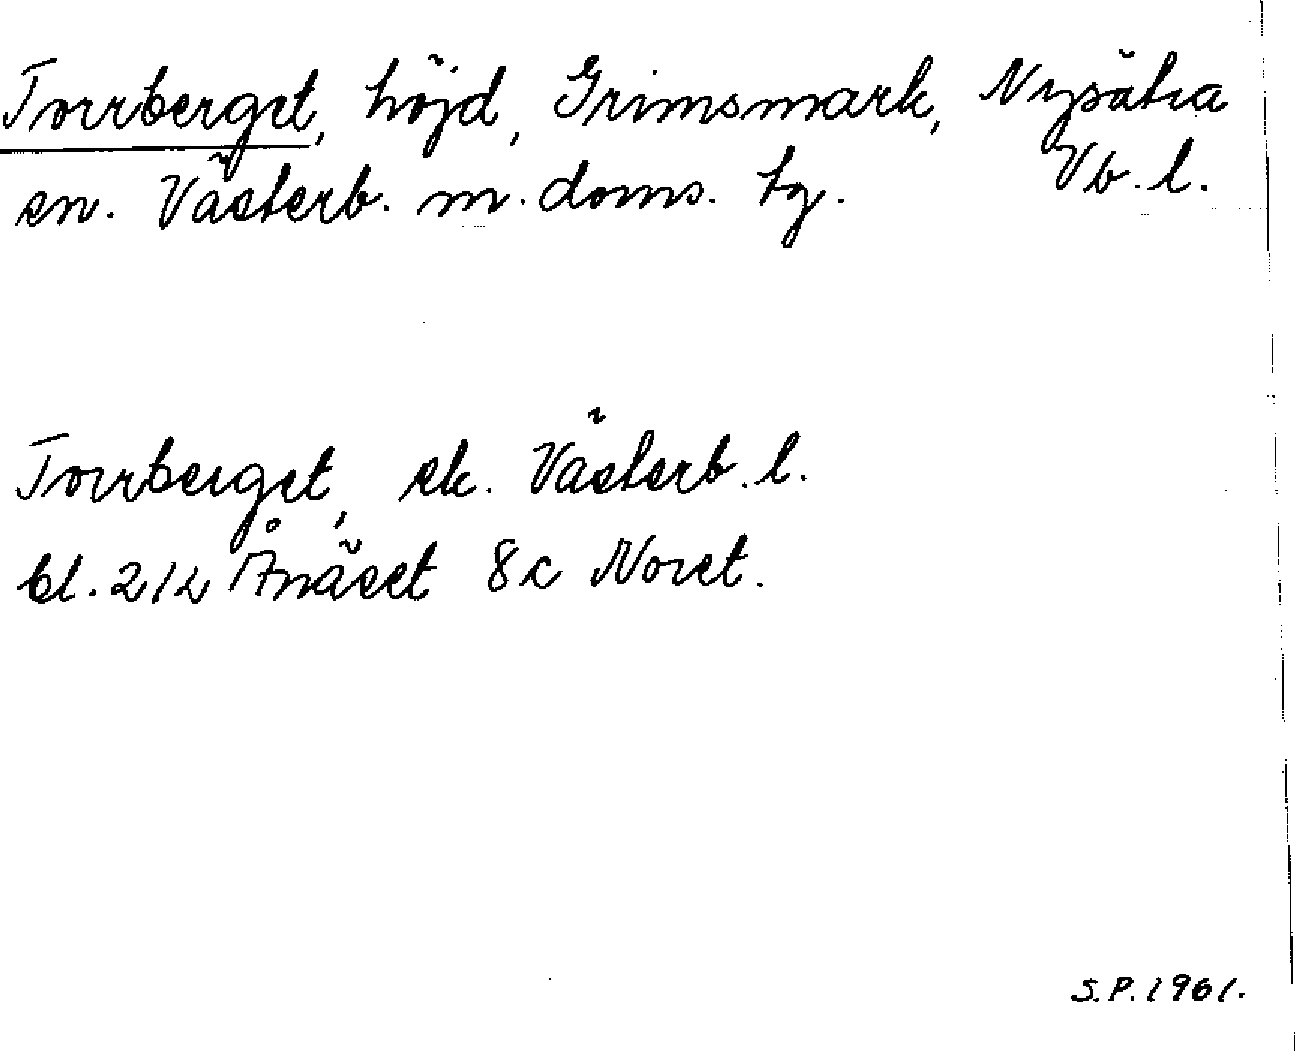 Torrberget, höjd, Grimsmark, Nysätra
sn. Västerb. m. doms. tg. Vb. l.
Torrberget, ek. Västerb. l.
bl. 212 Ånäset 8c Noret.
S.P. 1961.